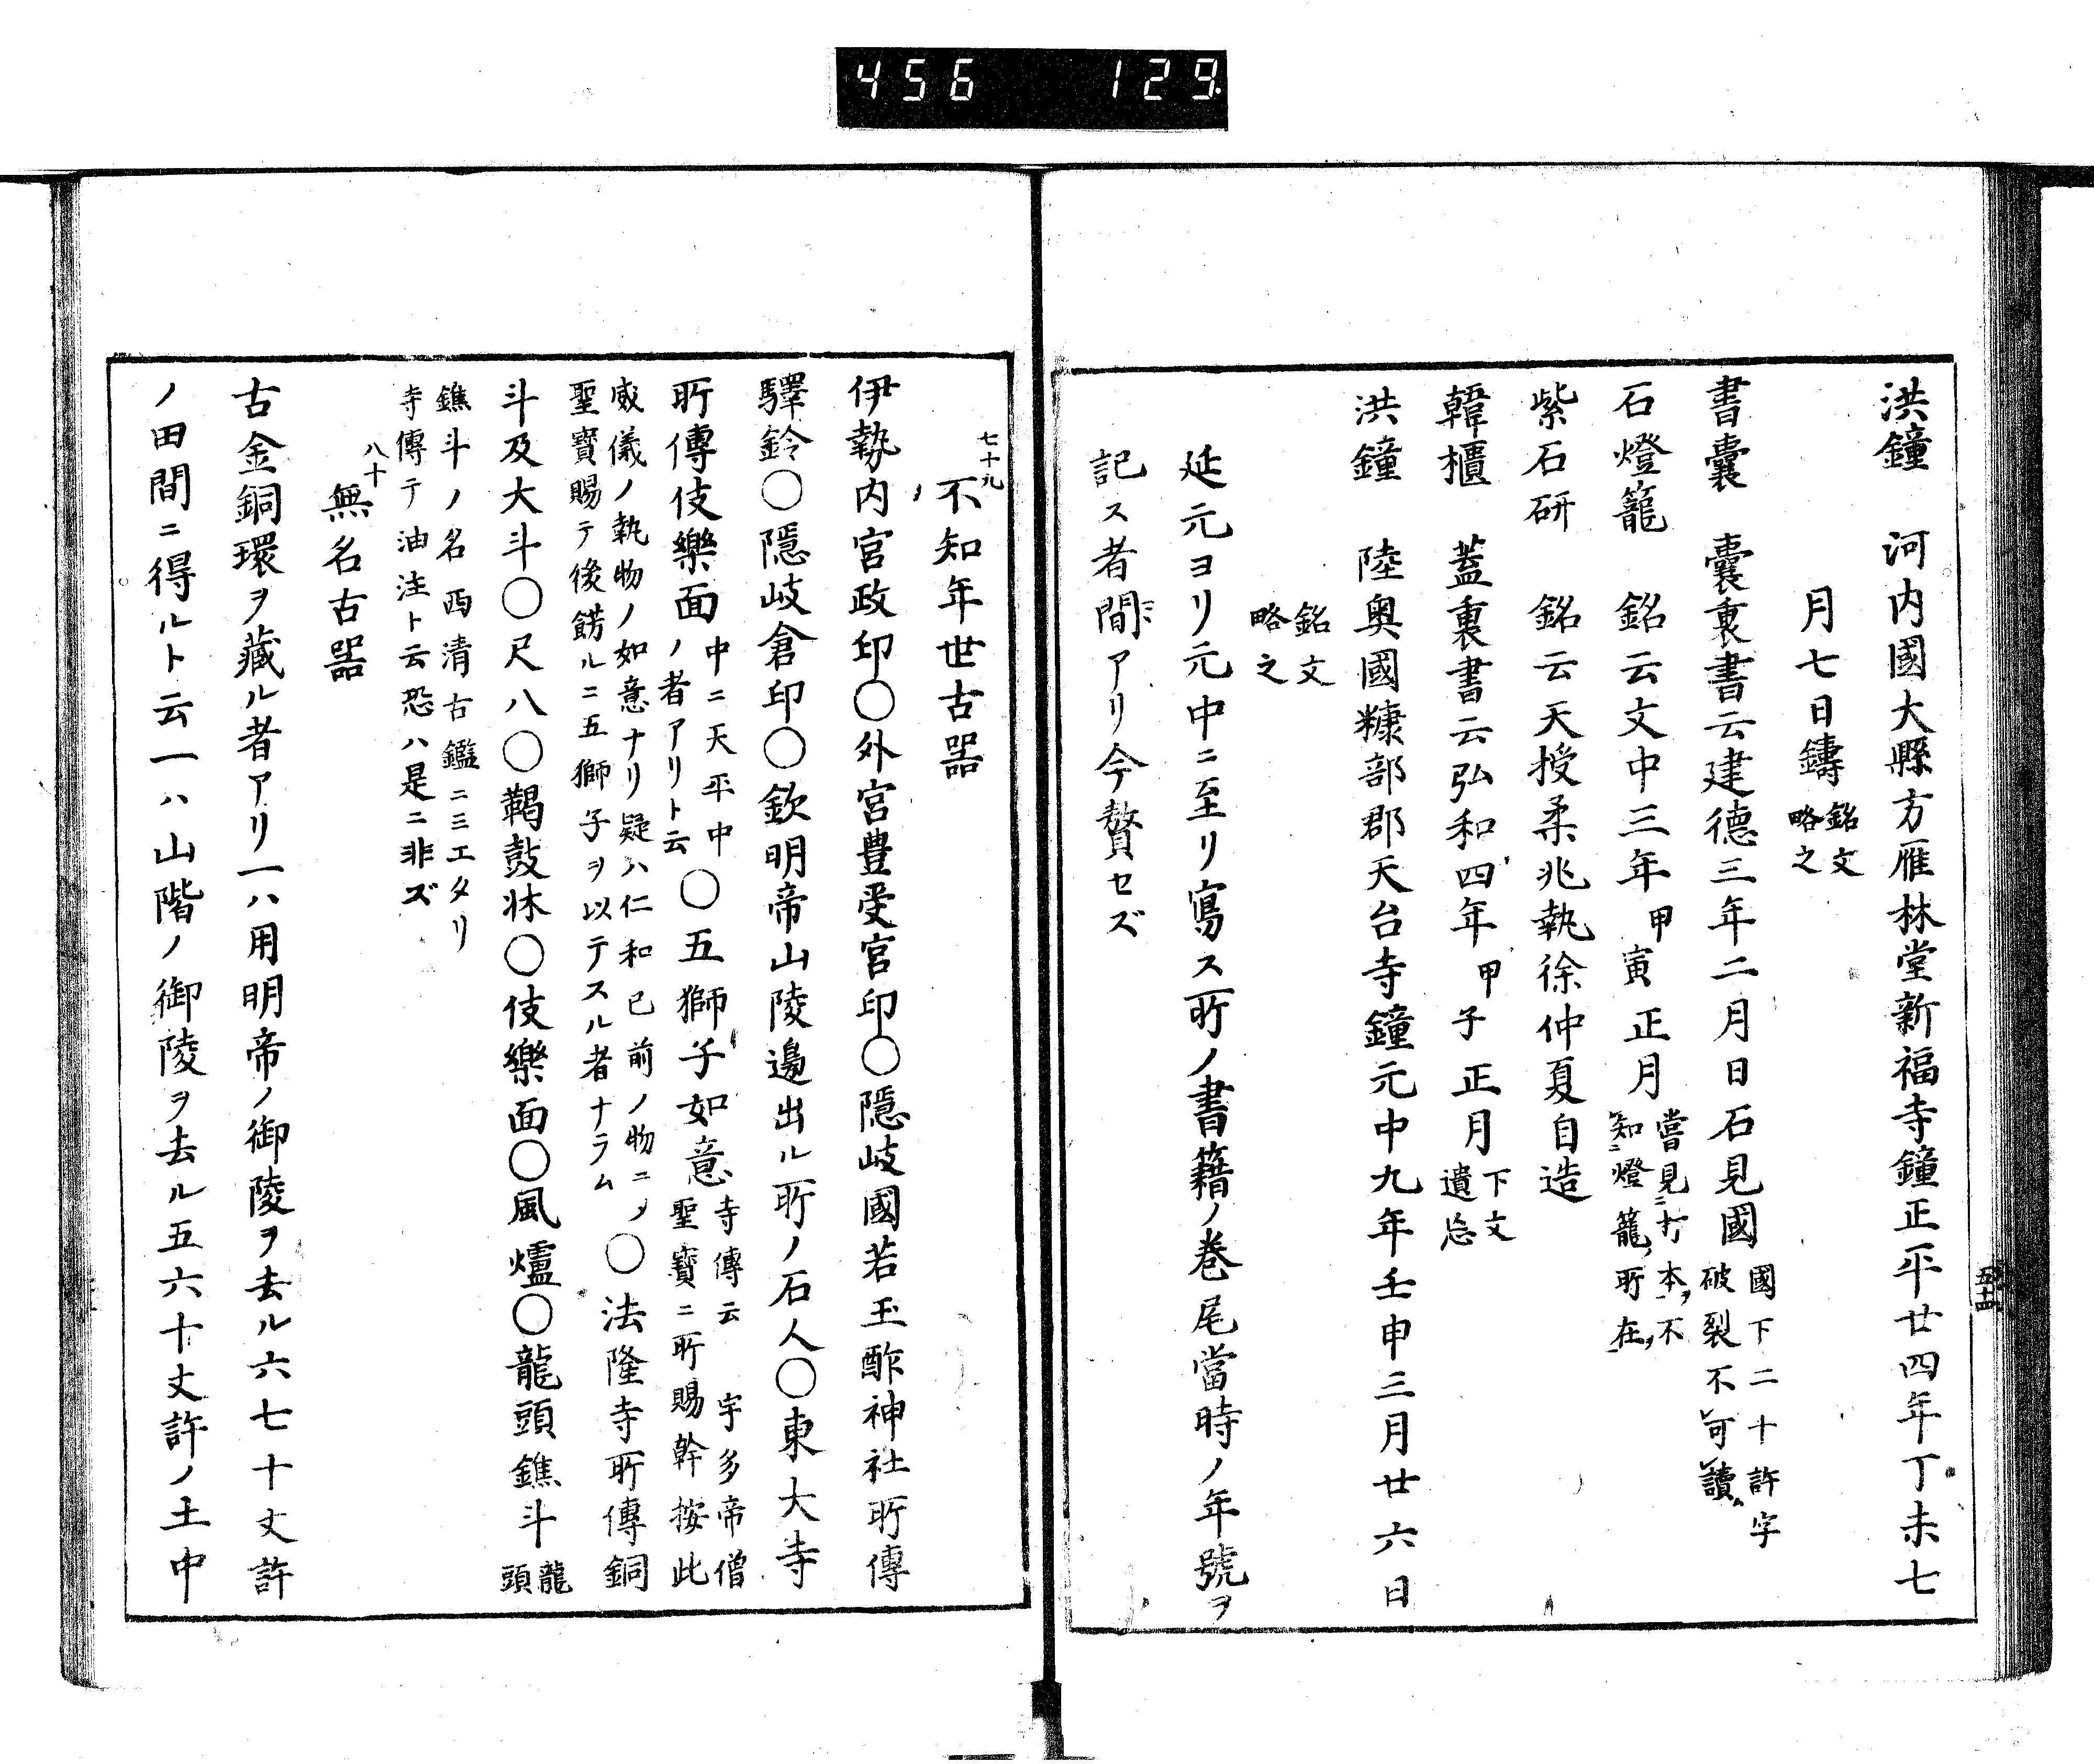 456 129
洪鐘 河内國大縣方雁林堂新福寺鐘正平廿四年丁未七
月七日鑄 銘文
略之
書嚢 嚢裏書云建德三年二月日石見國 國下二十許字
破裂不可讀
石燈籠 銘云文中三年甲寅正月 嘗見打本不
知燈籠所在
紫石研 銘云天授柔兆執徐仲夏自造
韓櫃 蓋裏書云弘和四年甲子正月 下文
遺忘
洪鐘 陸奥國糠部郡天台寺鐘元中九年壬申三月廿六日
銘文
略之
延元ヨリ元中ニ至リ寫ス所ノ書籍ノ巻尾當時ノ年號ヲ
記ス者間アリ今贅セズ
五十四
七十九
不知年世古噐
伊勢内宮政印〇外宮豊受宮印〇隠岐國若玉酢神社所傳
驛鈴〇隠岐倉印〇欽明帝山陵邊出ル所ノ石人〇東大寺
所傳伎樂面 中ニ天平中
ノ者アリト云 〇五獅子如意 寺傳云 宇多帝僧
聖寶ニ所賜幹按此
威儀ノ執物ノ如意ナリ疑ハ仁和已前ノ物ニノ
聖寶賜テ後餝ルニ五獅子ヲ以テスル者ナラム 〇法隆寺所傳銅
斗及大斗〇尺八〇鞨鼓牀〇伎樂面〇風爐〇龍頭鐎斗 龍
頭
鐎斗ノ名西清古鑑ニミエタリ
寺傳テ油注ト云恐ハ是ニ非ズ
八十
無名古噐
古金銅環ヲ藏ル者アリ一ハ用明帝ノ御陵ヲ去ル六七十丈許
ノ田間ニ得ルト云一ハ山階ノ御陵ヲ去ル五六十丈許ノ土中